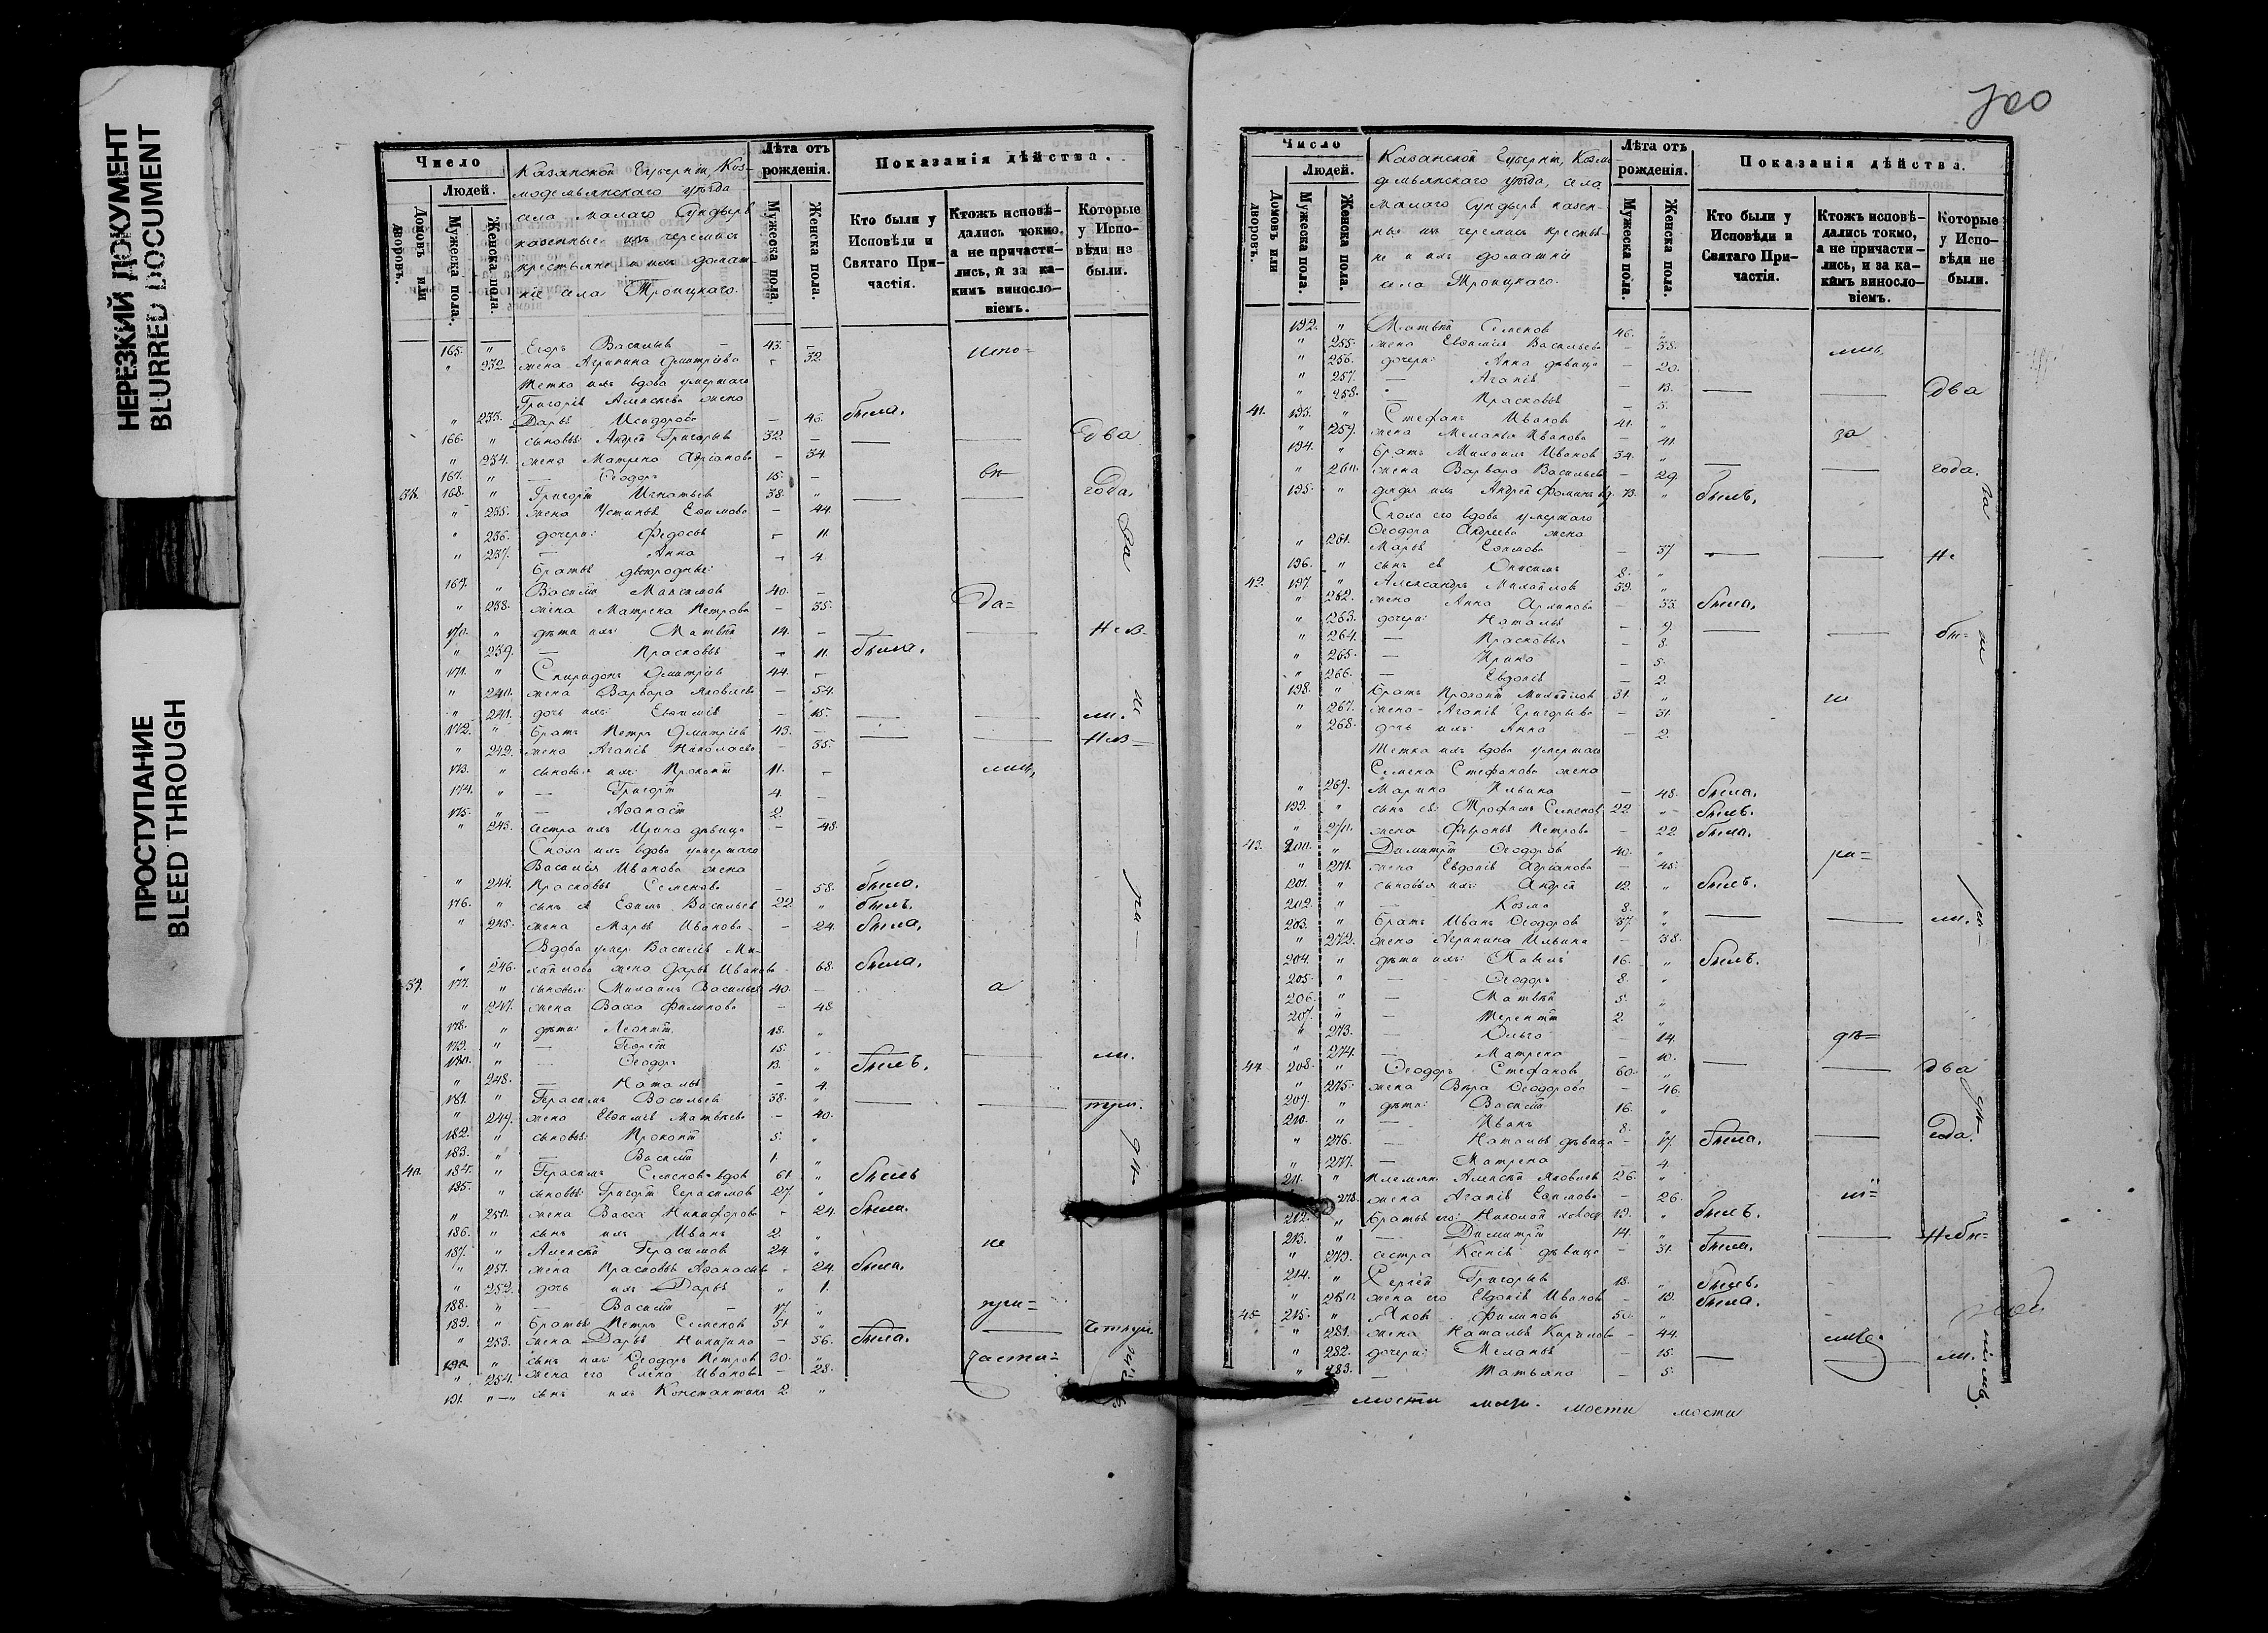 НЕРЕЗКИЙ ДОКУМЕНТ
BLURRED DOCUMENT
ПРОСТУПАНИЕ
BLEED THROUGH
Число
Людей.
Домовъ или дворовъ.
Мужеска пола.
Женска пола.
Казанской Губерніи, Коз-
модемьянскаго уѣзда
села Малаго Сундыря
казенные изъ черемис
крестьяне и их домаш-
ніе села Троицкаго.
Лѣта отъ рожденія.
Мужеска пола.
Женска пола.
Показанія дѣйства.
Кто были у Исповѣди и Святаго При-частія.
Ктожъ исповѣ-дались токмо, а не причасти-лись, и за ка-кимъ винословіемъ.
Которые у Испо-вѣди не были.
165. " Егоръ Васильев 43. —
" 232. жена Агрипина Дмитріева — 32.
Тетка ихъ вдова умершаго
Григорія Алексѣева жена
" 233. Дарья Исидорова — 46. была.
166. " сыновья: Андрей Григорьев 32. —
" 234. жена Матрена Адріанова — 34.
167. " — Ѳеодоръ 15. —
38. 168. " Григорій Игнатьев 38. "
" 235. жена Устинья Ефимова — 44.
" 236. дочери: Федосья — 11.
" 237. — Анна — 4.
братья двоюродные:
169. " Василій Максимов 40. —
" 238. жена Матрена Петрова — 35.
170. " дѣти ихъ: Матвѣй 14. —
" 239. — Прасковья — 11. была.
171. " Спиридонъ Дмитріев 44. —
" 240. жена Варвара Яковлева — 54.
" 241. дочь ихъ: Евѳимія — 15.
172. " братъ Петръ Дмитріев 43. —
" 242. жена Агапія Николаева — 35.
173. " сыновья ихъ: Прокопій 11. —
174. " — Григорій 4. —
175. " — Аѳанасій 2. —
" 243. сестра ихъ Ирина дѣвица — 48.
Сноха ихъ вдова умершаго
Василія Иванова жена
" 244. Прасковья Семенова — 58. была.
176. " сынъ ея Ефимъ Васильев 22. " былъ.
" 245. жена Марья Иванова — 24. была.
Вдова умер. Василія Ми-
" 246. хайлова жена Дарья Иванова 68. была.
39. 177. " сыновья: Михаилъ Васильев 40. —
" 247. жена Васса Филипова — 48.
178. " дѣти: Леонтій 18. "
179. " — Георгій 15. "
180. " — Ѳеодоръ 13. " былъ.
" 248. — Наталья — 4.
181. " Герасимъ Васильев 38. "
" 249. жена Евѳимія Матвѣева — 40.
182. " сыновья: Прокопій 5. "
183. " — Василій 1. "
40. 184. " Герасимъ Семенов вдов 61. " былъ
185. " сыновья: Григорій Герасимов 27. "
" 250. жена Васса Никифорова — 24. была.
186. " сынъ ихъ Иванъ 2. "
187. " Алексѣй Герасимов 24. "
" 251. жена Прасковья Аѳанасьев — 24. была.
" 252. дочь ихъ Дарья " 1.
188. " — Василій — 17. "
189. " братья Петръ Семенов 51. "
" 253. жена Дарья Никитина — 56. была.
190. " сынъ ихъ Ѳеодоръ Петров 30. "
" 254. жена его Елена Иванова — 28.
191. " — " сынъ ихъ Константинъ 2. "
Число
Людей.
Домовъ или дворовъ.
Мужеска пола.
Женска пола.
Казанской Губерніи, Козмо-
демьянскаго уѣзда, села
Малаго Сундыря казен-
ные изъ черемис крестья-
не и ихъ домашніе
села Троицкаго.
Лѣта отъ рожденія.
Мужеска пола.
Женска пола.
Показанія дѣйства.
Кто были у Исповѣди и Святаго При-частія.
Ктожъ исповѣ-дались токмо, а не причасти-лись, и за ка-кимъ винословіемъ.
Которые у Испо-вѣди не были.
192. " Матвѣй Семенов 46. "
" 255. жена Евѳимія Васильева — 38.
" 256. дочери: Анна дѣвица — 20.
" 257. — Агапія — 13.
" 258. — Прасковья — 5.
41. 193. " Стефанъ Иванов 41. "
" 259. жена Меланья Иванова — 41.
194. " братъ Михаилъ Иванов 34. "
" 260. жена Варвара Васильева — 29.
195. " дядя ихъ Андрей Фомин вд. 73. " былъ.
Сноха его вдова умершаго
Ѳеодора Андреева жена
" 261. Марья Ефимова — 37
196. " сынъ ея Онисимъ 8. "
42. 197. " Александръ Михайлов 39. "
" 262. жена Анна Архипова — 33. была.
" 263. дочери: Наталья — 9.
" 264. — Прасковья — 8.
" 265. — Ирина — 5.
" 266. — Евдокія — 2.
198. " братъ Прокопій Михайлов 31. "
" 267. жена Агапія Григорьева — 31.
" 268. дочь ихъ: Анна — 2.
Тетка ихъ вдова умершаго
Семена Стефанова жена
" 269. Марина Ильина — 48. была.
199. " сынъ ея: Трофимъ Семенов 22 " былъ.
" 270. жена Февронья Петрова — 22 была.
43. 200. " Димитрій Ѳеодоров 40. "
" 271. жена Евдокія Адріанова — 45.
201. " сыновья ихъ: Андрей 12. " былъ.
202. " — Козма 8. "
203. " братъ Иванъ Ѳеодоров 37. "
" 272. жена Агрипина Ильина — 38.
204. " дѣти ихъ: Павелъ 16. " былъ.
205. " — Ѳеодоръ 8. "
206. " — Матвѣй 5. "
207. " — Терентій 2. "
" 273. — Ольга — 14.
" 274. — Матрена — 10.
44. 208. " Ѳеодоръ Стефанов 60. "
" 275. жена Вѣра Ѳеодорова — 46.
209. " дѣти: Василій 16. "
210. " — Иванъ 8. "
" 276. — Наталья дѣвица — 17. была.
" 277. — Матрена — 4.
211. " племян. Алексѣй Яковлев 26. "
" 278. жена Агапія Ефимова — 26.
212. " братья его: Николай холост 19. " былъ.
213. " — Димитрій 14. "
" 279. сестра Ксенія дѣвица — 31. была.
214. " Сергѣй Григорьев 18. " былъ.
" 280. жена его Евдокія Иванова — 19. была.
45. 215. " Яковъ Филипов 50. "
" 281. жена Наталья Кирилова — 44.
" 282. дочери: Меланья — 15.
" 283. — Татьяна — 5.